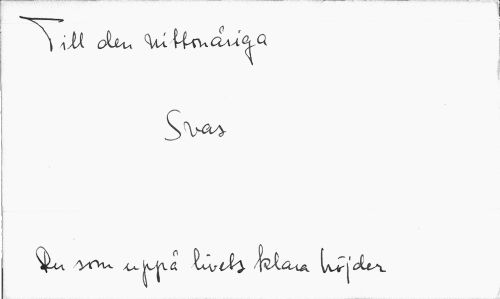 Till den nittonåriga
Svas
Du som uppå livets klara höjder